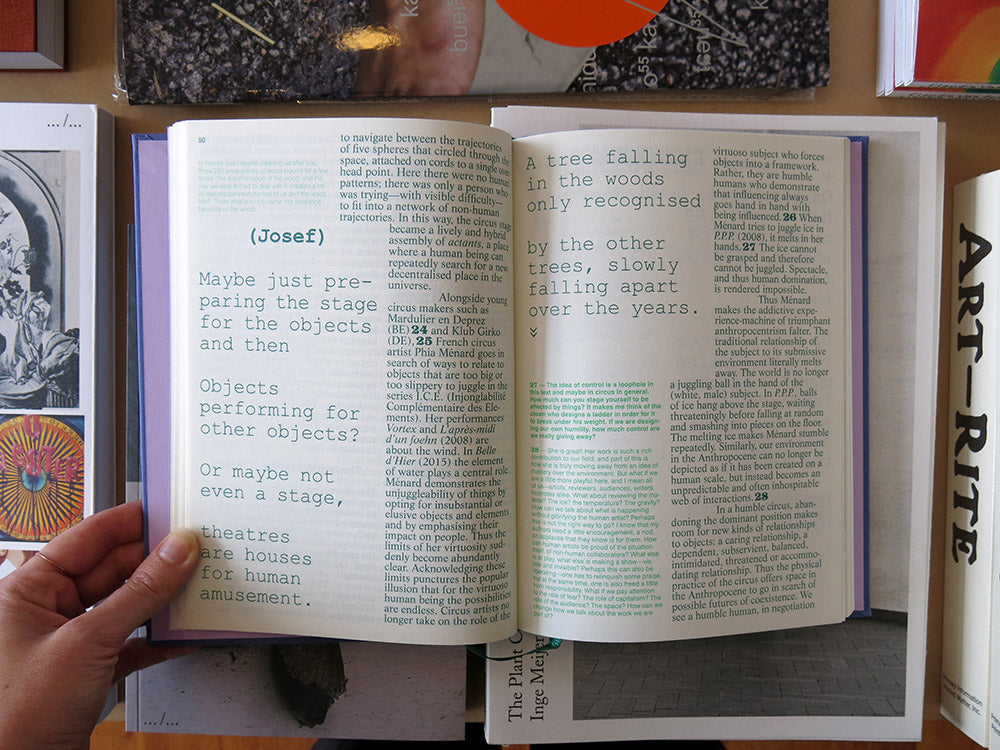 50
to handle. Just imagine cleaning up after you
to navigate between the trajectories
of five spheres that circled through the
space, attached on cords to a single over-
head point. Here there were no human
patterns; there was only a person who
was trying—with visible difficulty—
to fit into a network of non-human
trajectories. In this way, the circus stage
became a lively and hybrid
assembly of actants, a place
where a human being can
repeatedly search for a new,
decentralised place in the
universe.
Alongside young
circus makers such as
Mardulier en Deprez
(BE) 24 and Klub Girko
(DE), 25 French circus
artist Phia Ménard goes in
search of ways to relate to
objects that are too big or
too slippery to juggle in the
series I.C.E. (Injonglabilité
Complémentaire des Ele-
ments). Her performances
Vortex and L'après-midi
d'un foehn (2008) are
about the wind. In Belle
d'Hier (2015) the element
of water plays a central role.
Ménard demonstrates the
unjuggleability of things by
opting for insubstantial or
elusive objects and elements
and by emphasising their
impact on people. Thus the
limits of her virtuosity sud-
denly become abundantly
clear. Acknowledging these
limits punctures the popular
illusion that for the virtuoso
human being the possibilities
are endless. Circus artists no
longer take on the role of the
(Josef)
Maybe just pre-
paring the stage
for the objects
and then
Objects
performing for
other objects?
Or maybe not
even a stage,
theatres
are houses
for human
amusement.
A tree falling
in the woods
only recognised
by the other
trees, slowly
falling apart
over the years.
27 — The idea of control is a loophole in
this text and maybe in circus in general.
How much can you stage yourself to be
affected by things? It makes me think of the
clown who designs a ladder in order for it
to break under his weight. If we are design-
ing our own humility, how much control are
we really giving away?
28 — She is great! Her work is such a rich
contribution to our field, and part of this is
how she is truly moving away from an idea of
mastery over the environment. But what if we
are a little more playful here, and I mean all
of us—artists, reviewers, audiences, writers,
footnotes alike. What about reviewing the ma-
terial? The ice? the temperature? The gravity?
How can we talk about what is happening
without glorifying the human artist? Perhaps
this is not the right way to go? I know that my
authors need a little encouragement, a nod,
an applause that they know is for them. How
can human artists be proud of the situation
of non-human collaborators? What else
what else is making a show—vis-
ible and invisible? Perhaps this can also be
one has to relinquish some praise,
but at the same time, one is also freed a little
from responsibility. What if we pay attention
to the role of fear? The role of capitalism? The
role of the audience? The space? How can we
change how we talk about the work we are
part of?
virtuoso subject who forces
objects into a framework.
Rather, they are humble
humans who demonstrate
that influencing always
goes hand in hand with
being influenced. 26 When
Ménard tries to juggle ice in
P.P.P. (2008), it melts in her
hands. 27 The ice cannot
be grasped and therefore
cannot be juggled. Spectacle,
and thus human domination,
is rendered impossible.
Thus Ménard
makes the addictive expe-
rience-machine of triumphant
anthropocentrism falter. The
traditional relationship of
the subject to its submissive
environment literally melts
away. The world is no longer
a juggling ball in the hand of the
(white, male) subject. In P.P.P., balls
of ice hang above the stage, waiting
threateningly before falling at random
and smashing into pieces on the floor.
The melting ice makes Ménard stumble
repeatedly. Similarly, our environment
in the Anthropocene can no longer be
depicted as if it has been created on a
human scale, but instead becomes an
unpredictable and often inhospitable
web of interactions. 28
In a humble circus, aban-
doning the dominant position makes
room for new kinds of relationships
to objects: a caring relationship, a
dependent, subservient, balanced,
intimidated, threatened or accommo-
dating relationship. Thus the physical
practice of the circus offers space in
the Anthropocene to go in search of
possible futures of coexistence. We
see a humble human, in negotiation
ART-RITE
The Plant
Inge Meijer
.../...
.../...